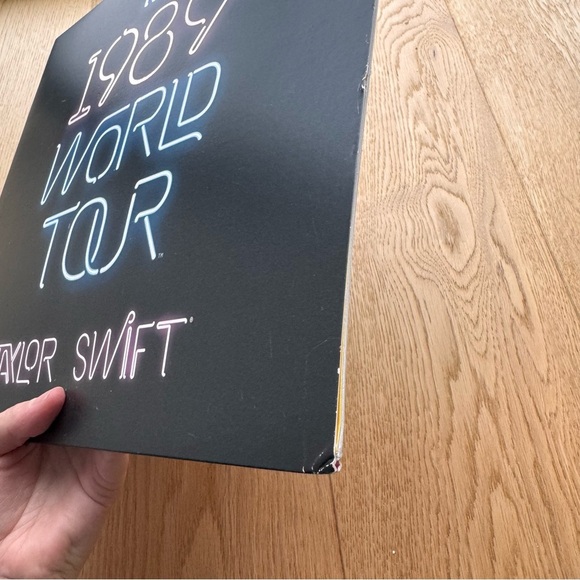 1989
WORLD
TOUR™
TAYLOR SWIFT®